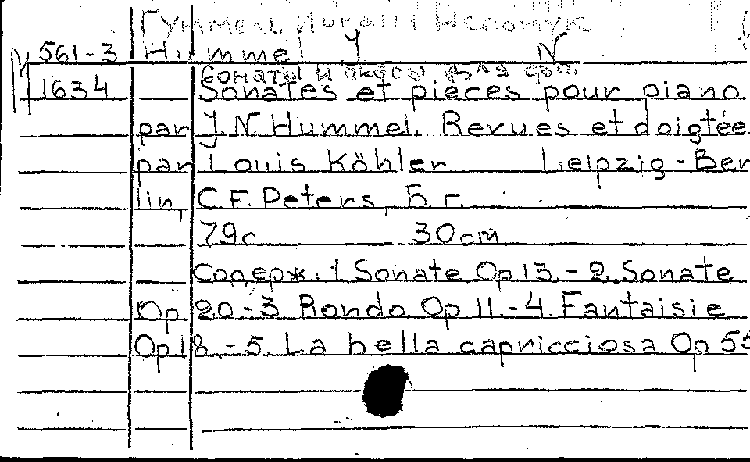 Гуммель Иоганн Непомук
561-3 Hummel J N
M
сонаты и пьесы для фп.
1634 Sonates et pièces pour piano
par J.N.Hummel. Revues et doigtée
par Louis Köhler Leipzig-Ber
lin, C.F.Peters, Б г.
79с 30cm
Содерж. 1 Sonate Op 13.-2. Sonate
Op 20-3. Rondo Op 11.-4. Fantaisie
Op 18.-5. La bella capricciosa Op 55